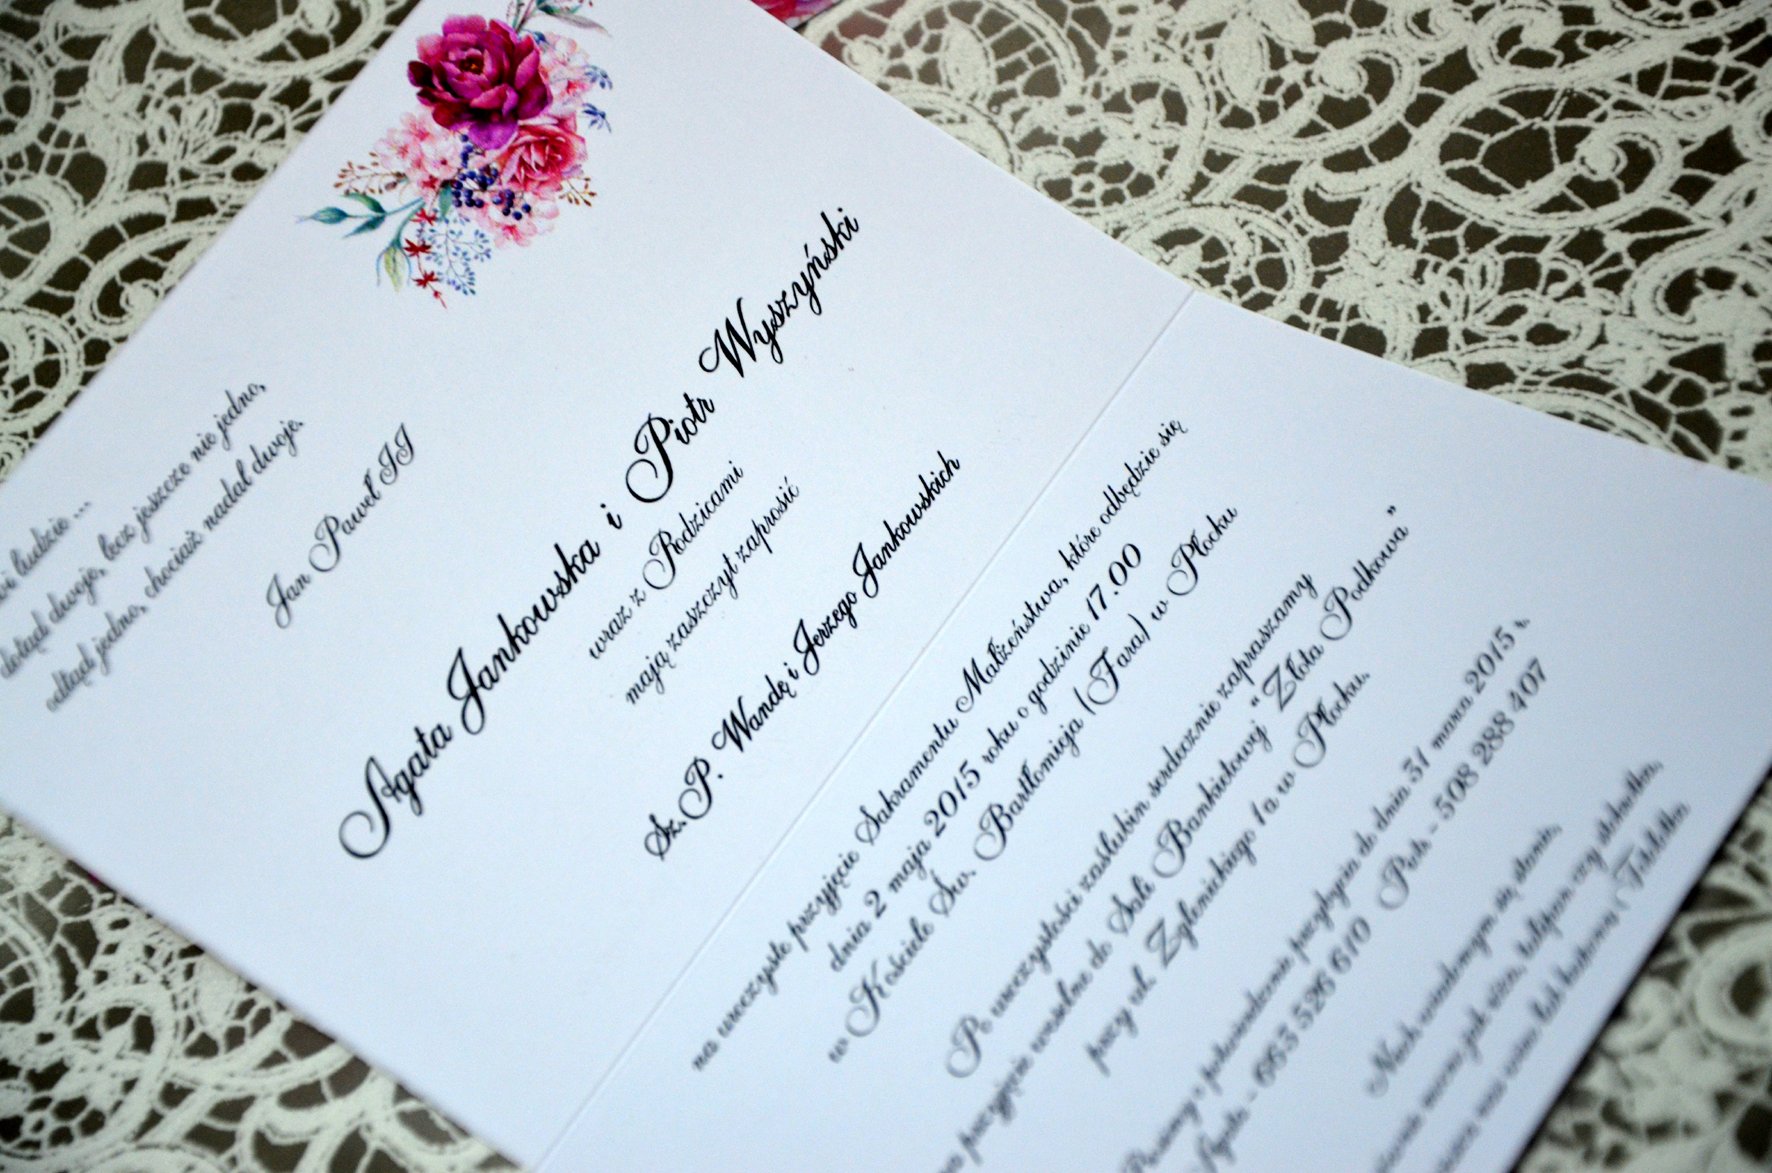 ludzie ...
dotąd dwoje, lecz jeszcze nie jedno,
odtąd jedno, chociaż nadal dwoje.
Jan Paweł II
Agata Jankowska i Piotr Wyszyński
wraz z Rodzicami
mają zaszczyt zaprosić
Sz.P. Wandę i Jerzego Jankowskich
na uroczyste przyjęcie Sakramentu Małżeństwa, które odbędzie się
dnia 2 maja 2015 roku o godzinie 17.00
w Kościele Św. Bartłomieja (Fara) w Płocku
Po uroczystości zaślubin serdecznie zapraszamy
przyjęcie weselne do Sali Bankietowej "Złota Podkowa"
przy ul. Zglenickiego 1a w Płocku.
Prosimy o potwierdzenie przybycia do dnia 31 marca 2015 r.
Agata - 653 526 610 Piotr - 508 288 407
Niech wiadomym się stanie,
jak wino, telewizor czy stokrotka,
wino lub kuponu Totolotka